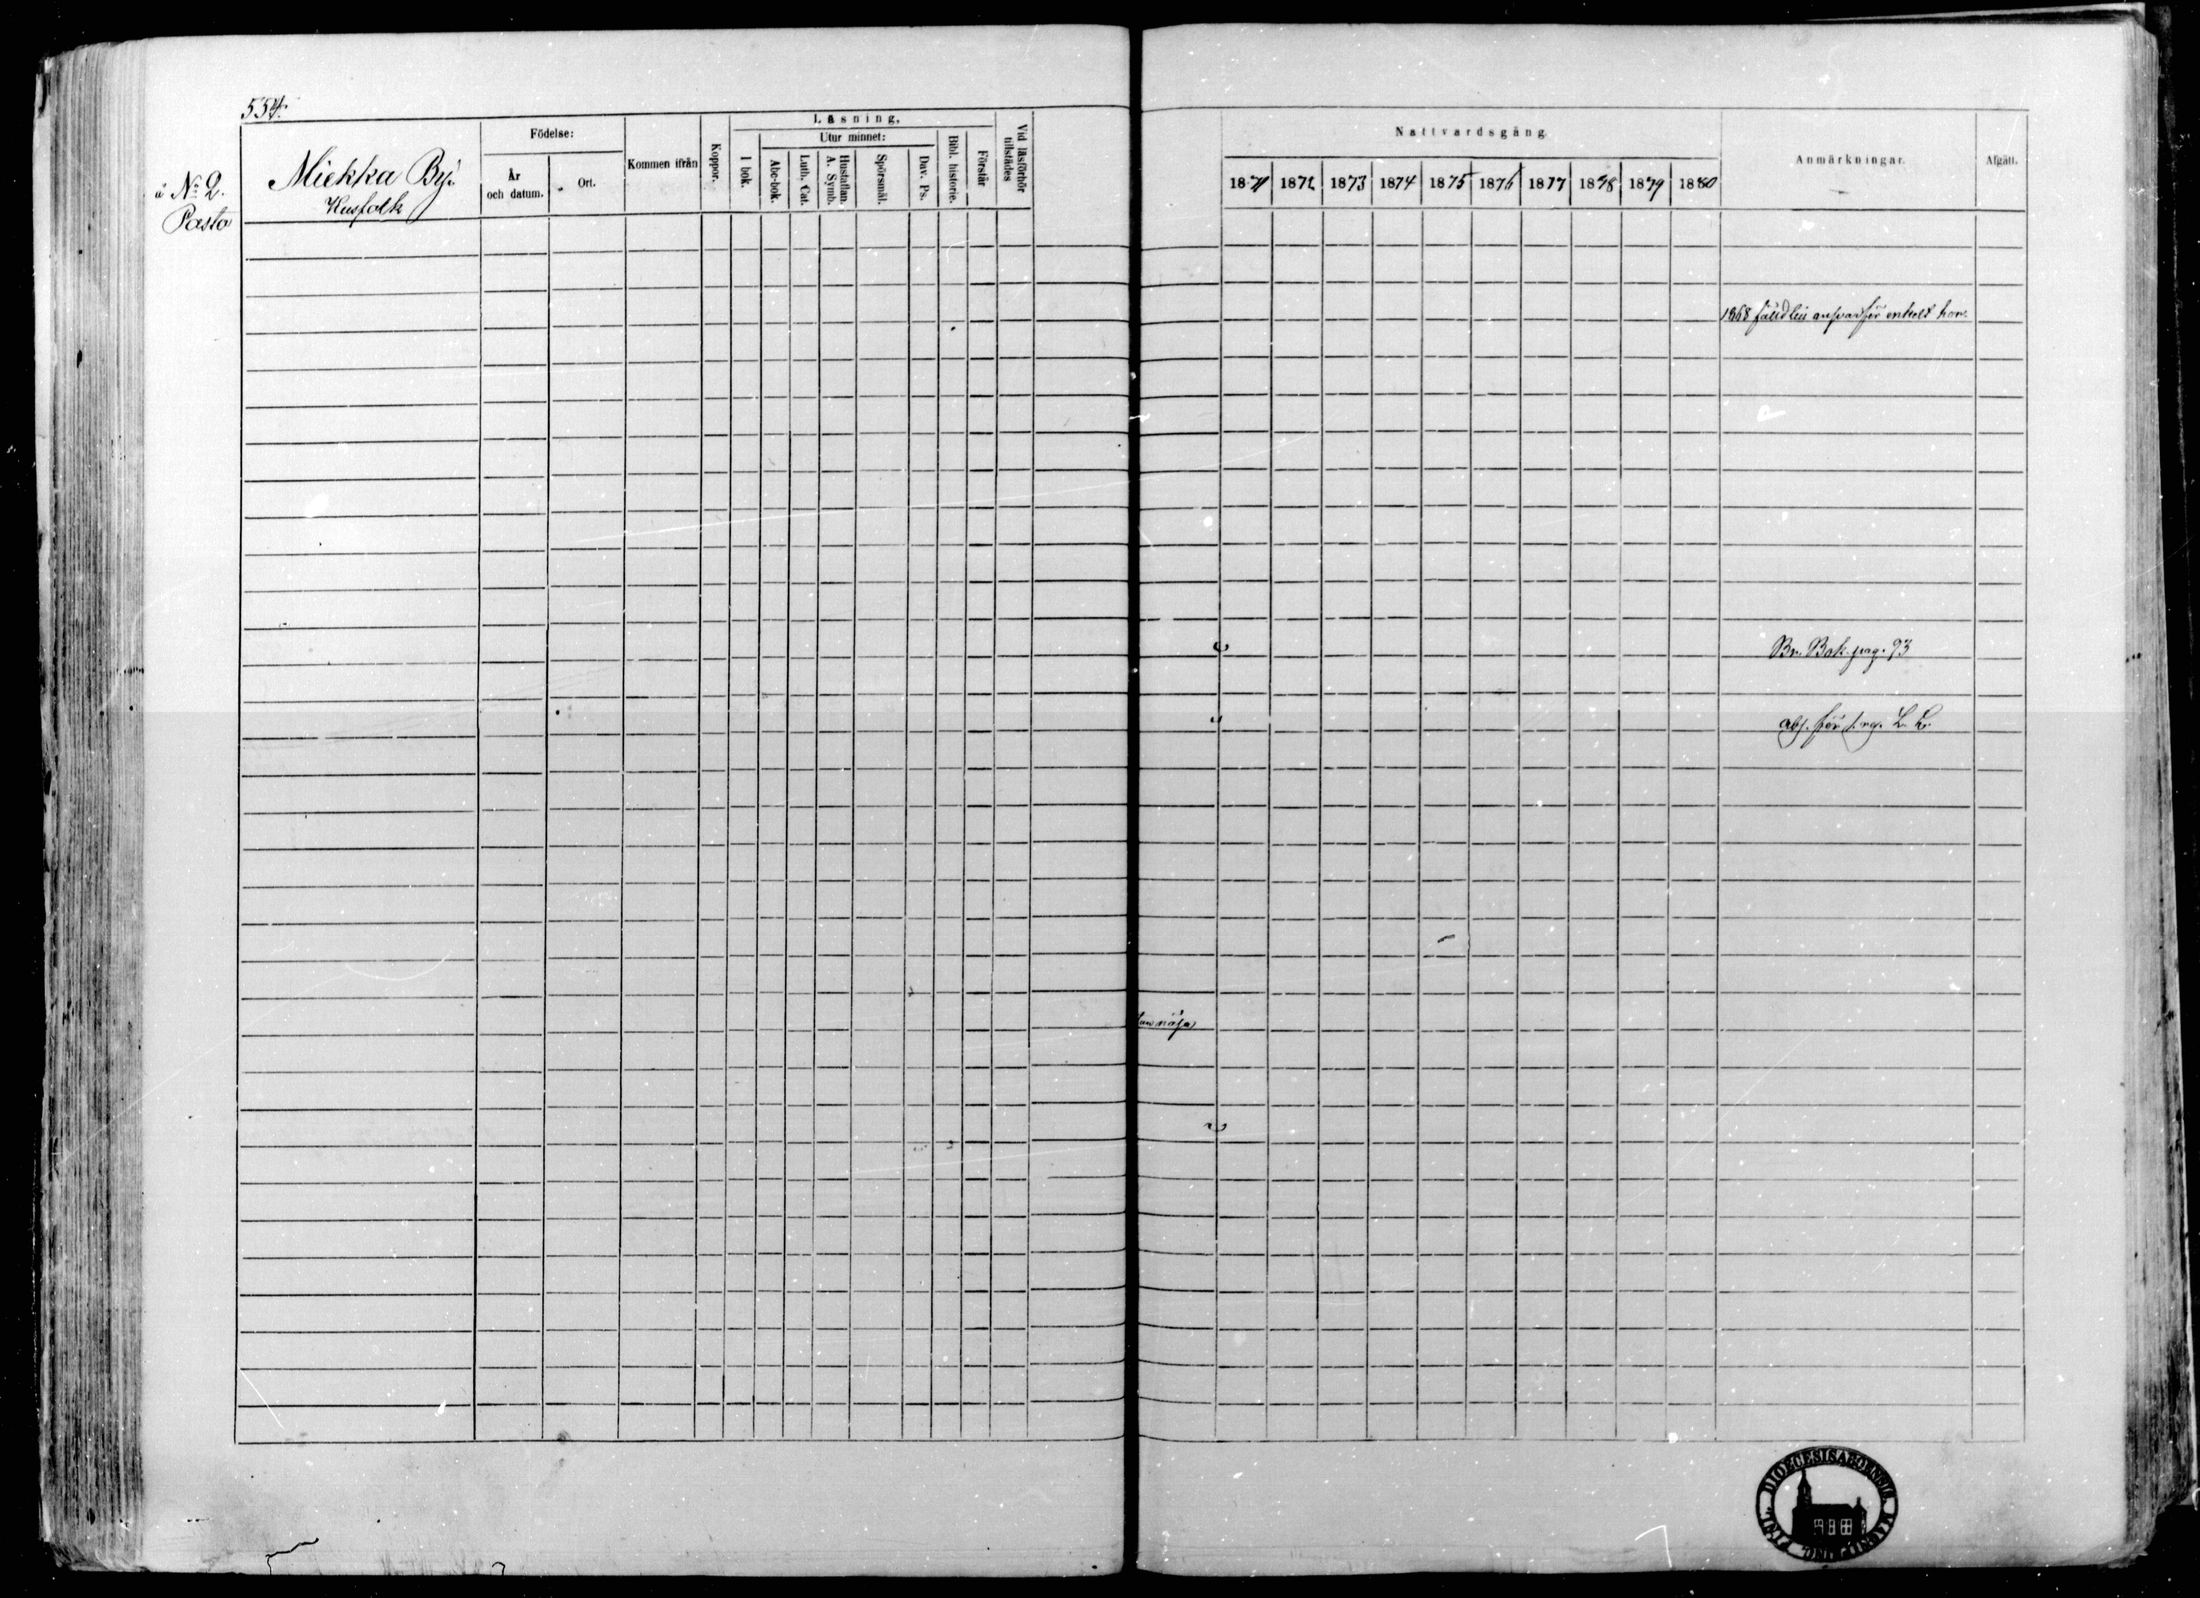 554.
å No 2.
Pasto
Miekka By.
Husfolk
Födelse:
År och datum.
Ort.
Kommen ifrån
Koppor.
Läsning,
I bok.
Utur minnet:
Abc-bok.
Luth. Cat.
Hustaflan. A. Symb.
Spörsmål.
Dav. Ps.
Bibl. historie.
Förstår
Vid läsförhör tillstädes
Nattvardsgång.
1871 1872 1873 1874 1875 1876 1877 1878 1879 1880
Anmärkningar.
Afgått.
1868 för enkelt hor.
Br. Bok pag. 93
abs. för
DIOECESIS ABOENSIS MAGNI PRINC. FINL.